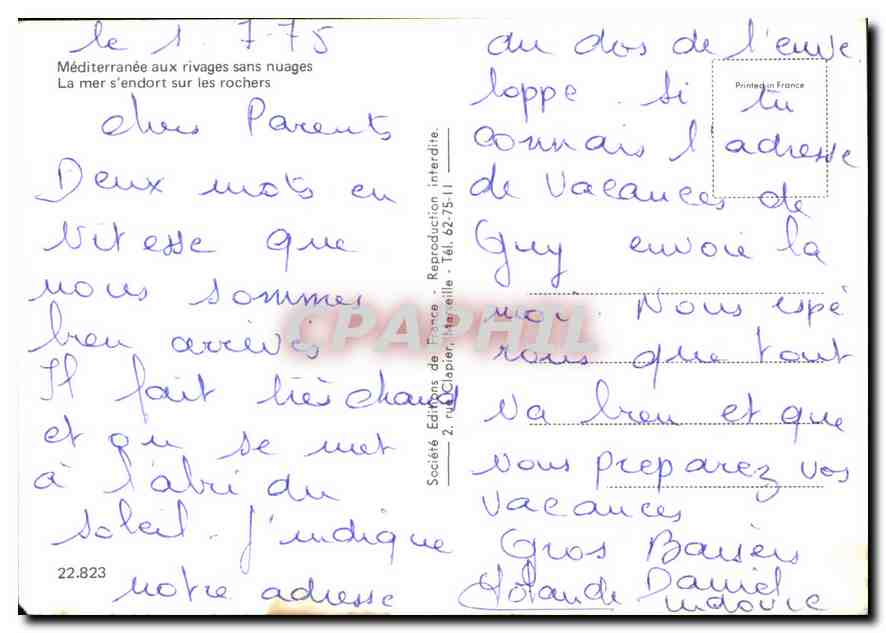 le 1.7.75
Méditerranée aux rivages sans nuages
La mer s'endort sur les rochers
chers Parents
Deux mots en
vitesse que
nous sommes
bien arrivés
Il fait très chaud
et on se met
à l'abri du
soleil. J'indique
notre adresse
22.823
Société Editions de France - Reproduction interdite.
2, rue Clapier, Marseille - Tél. 62-75-11
CPAPHIL
Printed in France
au dos de l'enve
loppe. Si tu
connais l'adresse
de vacances de
Guy envoie la
moi. Nous espé
rons que tout
va bien et que
vous preparez vos
vacances
Gros Baisers
Yolande Daniel
Ludovic